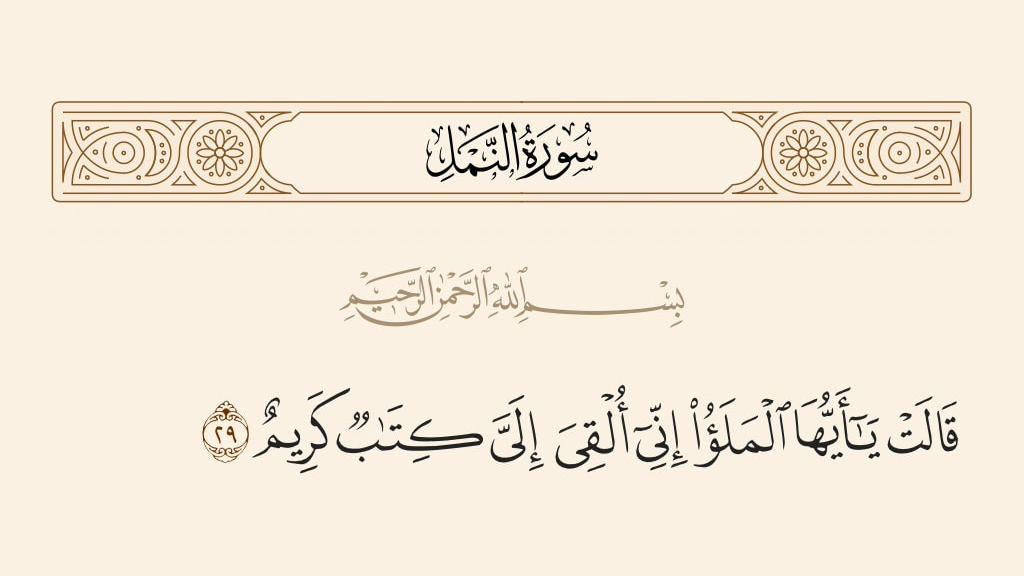 سُورَةُ النَّمْلِ
بِسْمِ ٱللَّهِ ٱلرَّحْمَٰنِ ٱلرَّحِيمِ
قَالَتْ يَـٰٓأَيُّهَا ٱلْمَلَؤُا۟ إِنِّىٓ أُلْقِىَ إِلَىَّ كِتَـٰبٌ كَرِيمٌ ٢٩